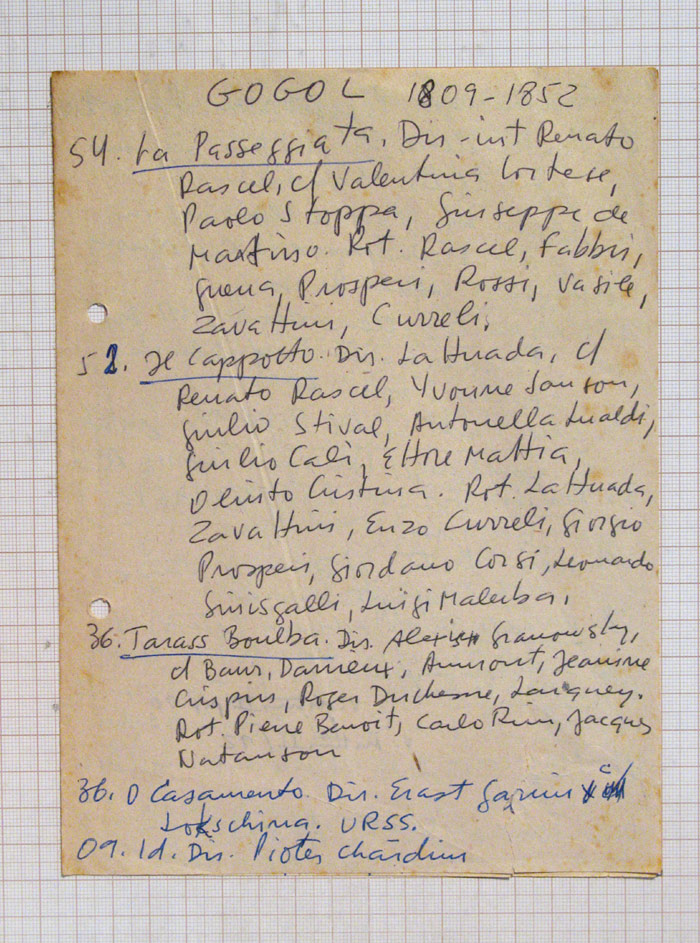 GOGOL 1809-1852
54. La Passeggiata. Dir-int Renato
Rascel, c/ Valentina Cortese,
Paolo Stoppa, Giuseppe de
Martino. Rot. Rascel, Fabbri,
Guerra, Prosperi, Rossi, Vasile,
Zavattini, Curreli.
52. Il Cappotto. Dir. Lattuada, c/
Renato Rascel, Yvonne Sanson,
Giulio Stival, Antonella Lualdi,
Giulio Cali, Ettore Mattia,
Olinto Cristina. Rot. Lattuada,
Zavattini, Enzo Curreli, Giorgio
Prosperi, Giordano Corsi, Leonardo
Sinisgalli, Luigi Malerba.
36. Tarass Boulba. Dir. Alexis Granowsky,
c/ Baur, Darrieux, Aumont, Jeanine
Crispin, Roger Duchesne, Larquey.
Rot. Pierre Benoit, Carlo Rim, Jacques
Natanson
36. O Casamento. Dir. Erast Garin
Lokschina. URSS.
09. Id. Dir. Piotes Chardin